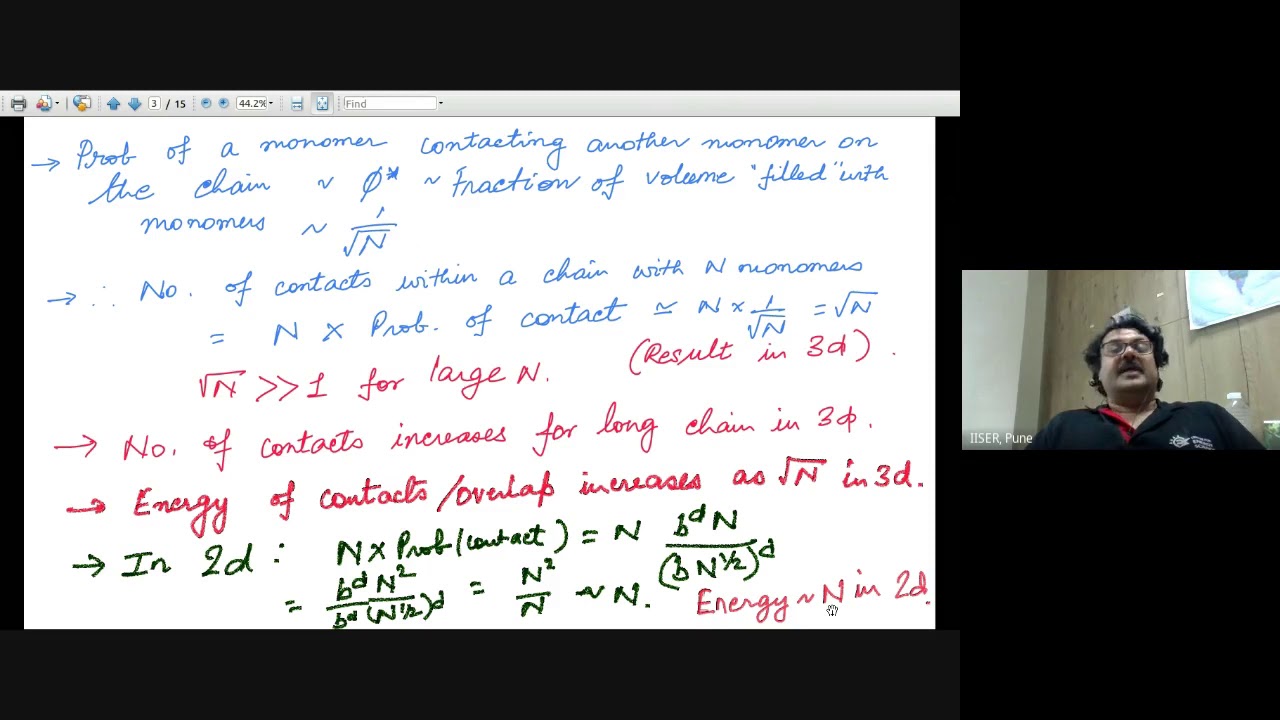 3 / 15
44.2%
Find
→ Prob of a monomer contacting another monomer on
the chain ~ φ* ~ Fraction of volume "filled" with
monomers ~ 1/√N
→ ∴ No. of contacts within a chain with N monomers
= N × Prob. of contact ≃ N × 1/√N = √N
√N >> 1 for large N. (Result in 3d).
→ No. of contacts increases for long chain in 3d.
→ Energy of contacts/overlap increases as √N in 3d.
→ In 2d : N × Prob(contact) = N b^d N / (b N^1/2)^d
= b^d N^2 / b^d (N^1/2)^d = N^2 / N ~ N. Energy ~ N in 2d.
IISER, Pune